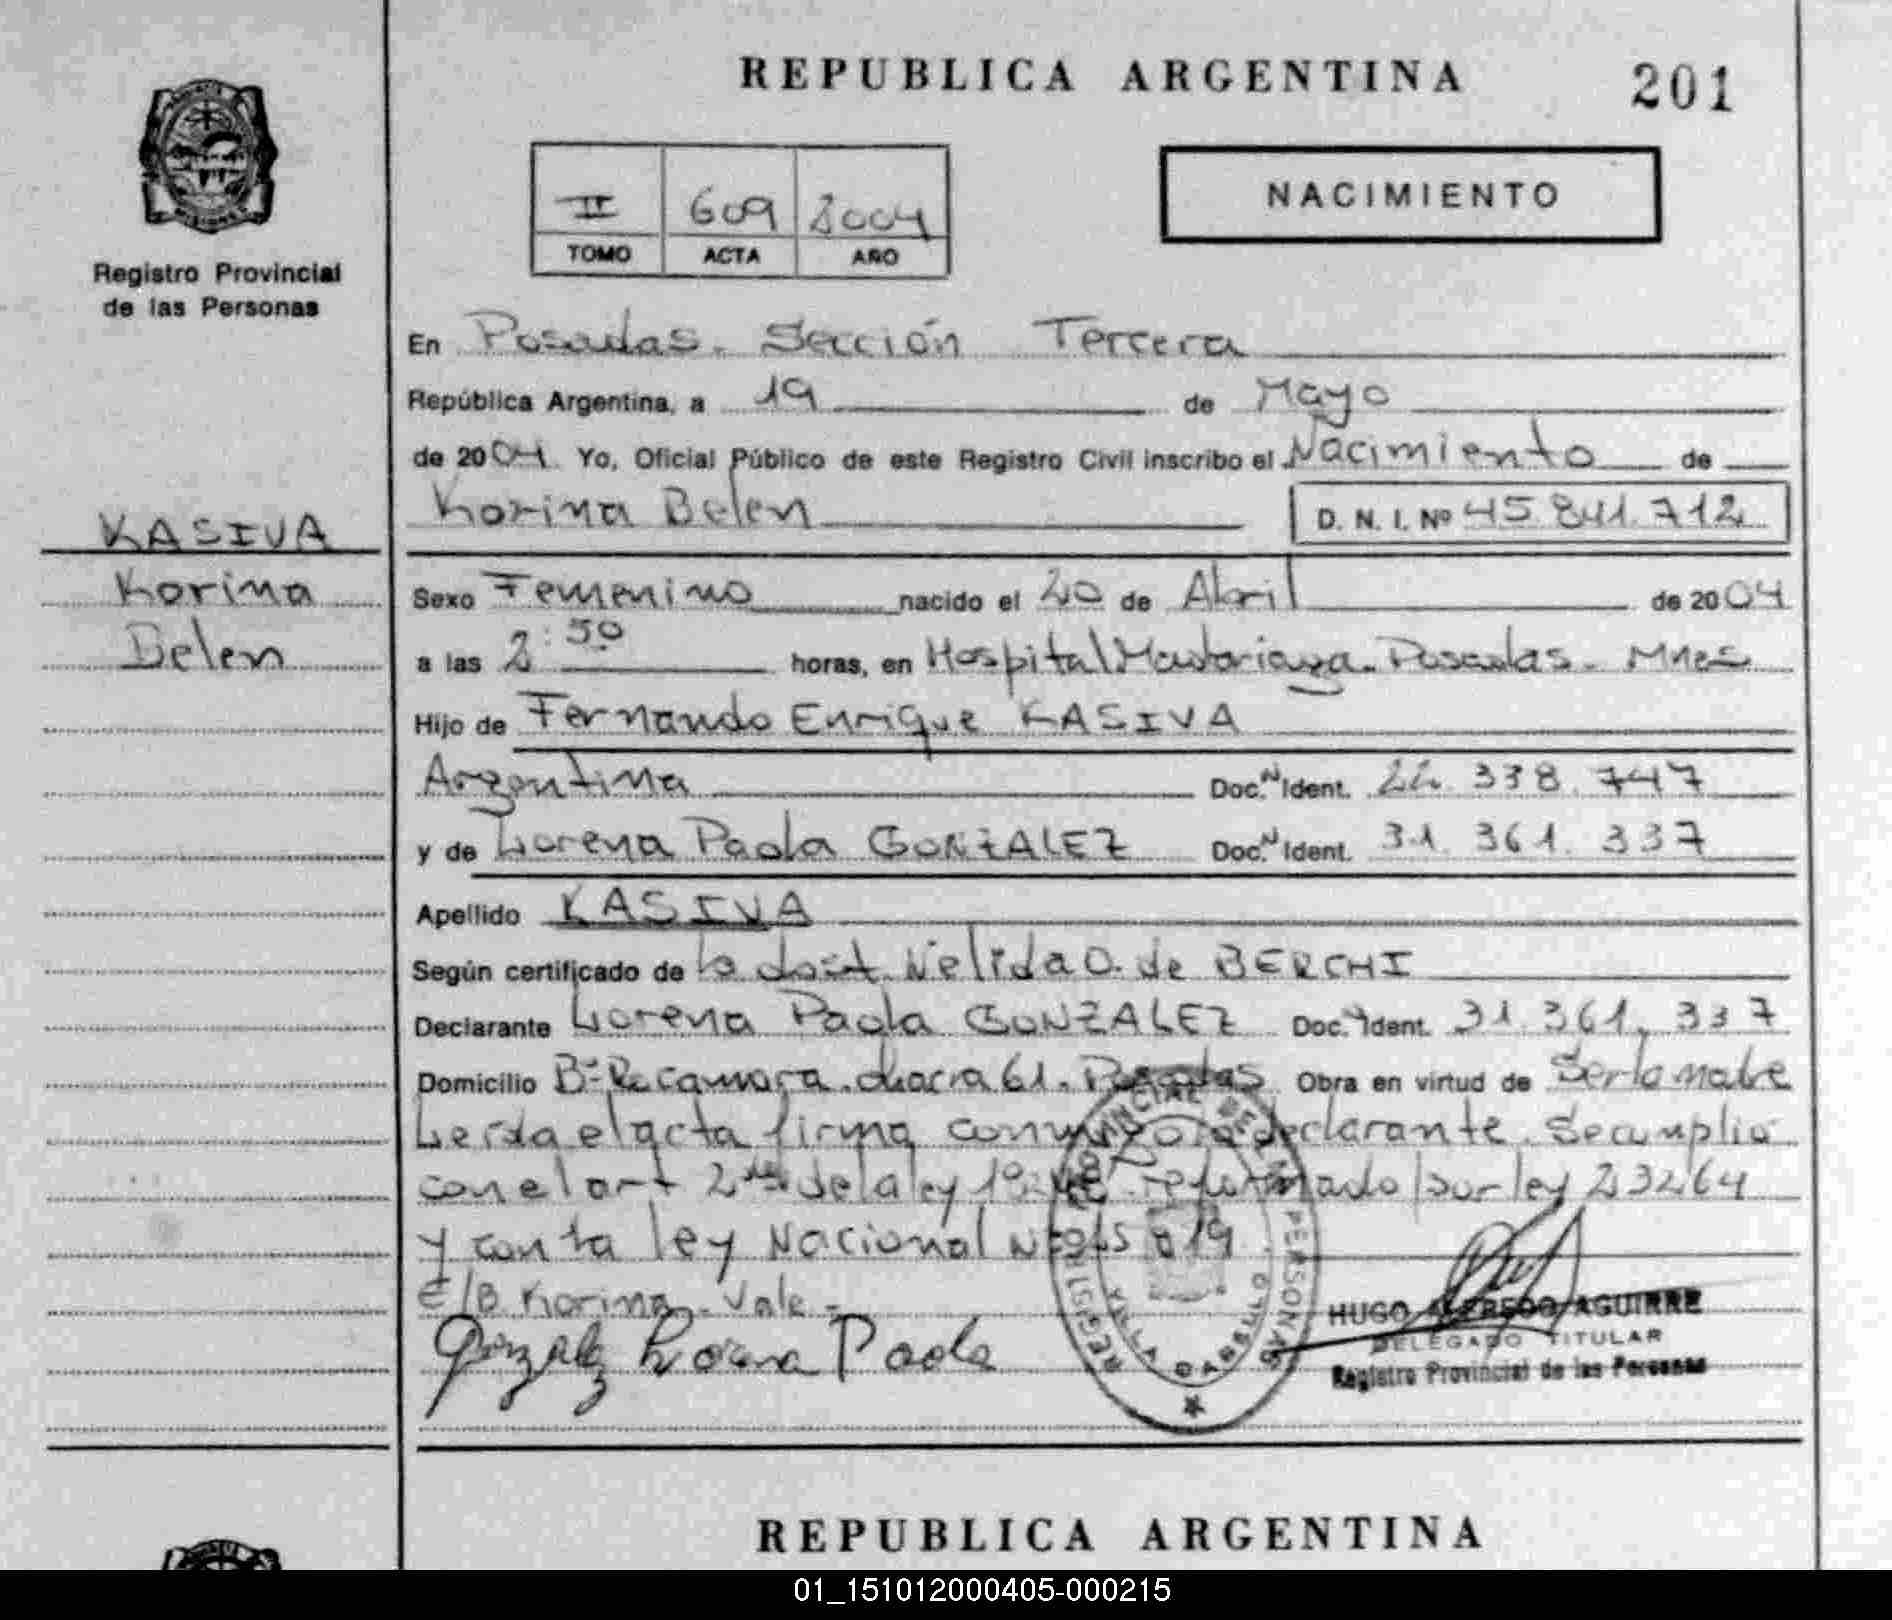 REPUBLICA ARGENTINA
201
II 609 2004
TOMO ACTA AÑO
NACIMIENTO
Registro Provincial
de las Personas
En Posadas. Sección Tercera
República Argentina, a 19 de Mayo
de 2004 Yo, Oficial Público de este Registro Civil inscribo el Nacimiento de
Korina Belen D. N. I. Nº 45.841.712
KASIVA
Korina
Belen
Sexo Femenino nacido el 20 de Abril de 2004
a las 2:50 horas, en Hospital Madariaga. Posadas. Mnes
Hijo de Fernando Enrique KASIVA
Argentina Doc.N Ident. 22.338.747
y de Lorena Paola GONZALEZ Doc.N Ident. 31.361.337
Apellido KASIVA
Según certificado de Nelida O. de BERCHI
Declarante Lorena Paola GONZALEZ Doc. Ident. 31.361.337
Domicilio Bº Rocamora. chacra 61. Posadas Obra en virtud de Ser la madre
Leida el acta firma conmigo la declarante. Se cumplio
con el art 2 de la ley reformado por ley 23264
y con la ley Nacional
E/B Korina. Vale.
Gonzalez Lorena Paola
REGISTRO PROVINCIAL DE LAS PERSONAS
HUGO ALFREDO AGUIRRE
DELEGADO TITULAR
Registro Provincial de las Personas
REPUBLICA ARGENTINA
01_151012000405-000215